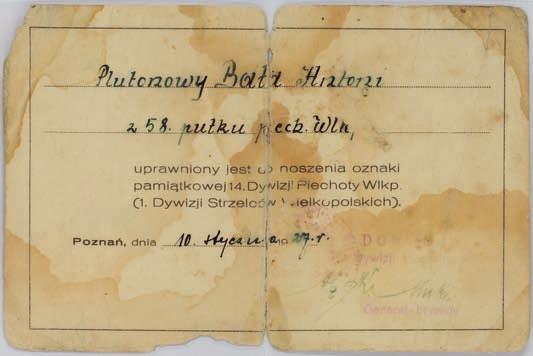 Plutonowy Bała Antoni
z 58. pułku piech. Wlk,
uprawniony jest do noszenia oznaki
pamiątkowej 14. Dywizji Piechoty Wlkp.
(1. Dywizji Strzelców Wielkopolskich).
Poznań, dnia 10. stycznia 1927. r.
Dywizji
Generał brygady